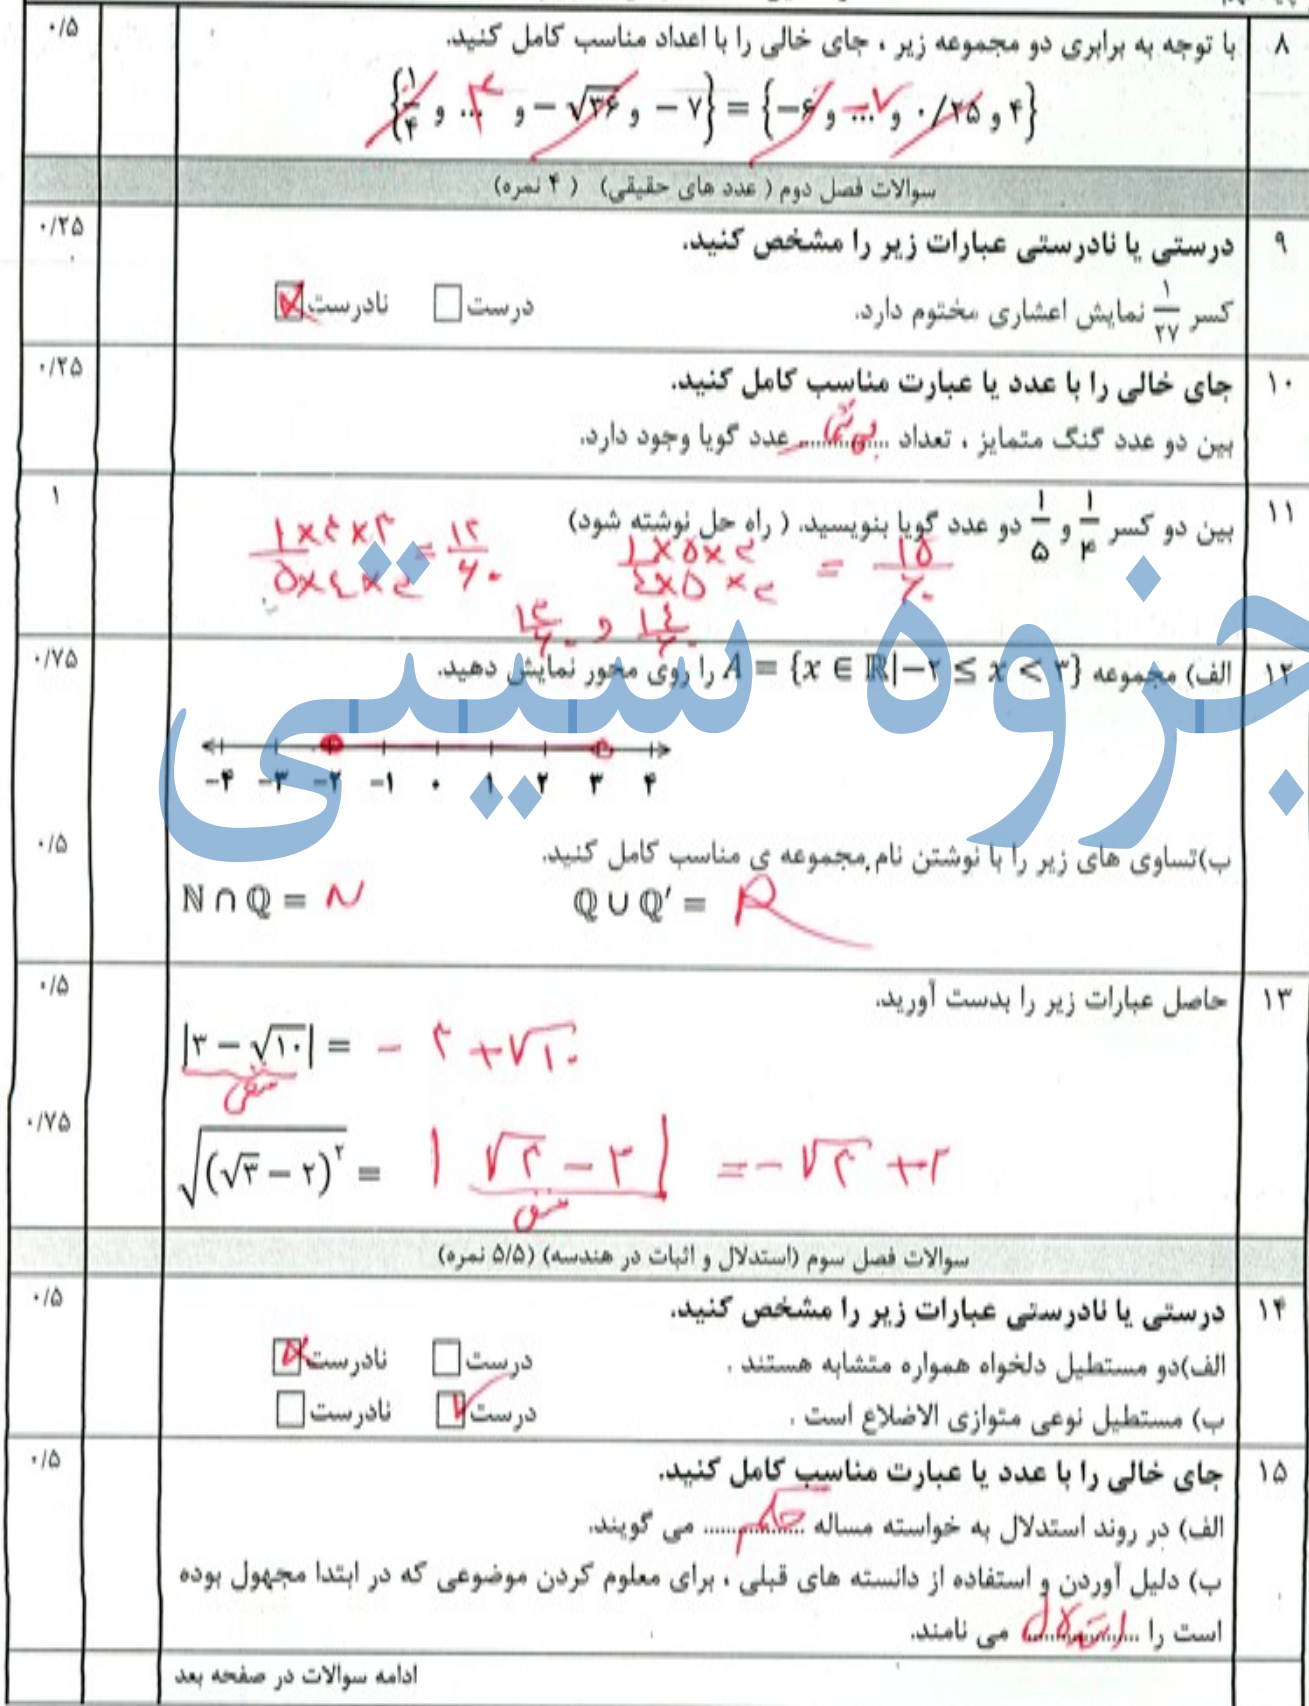 ۸ با توجه به برابری دو مجموعه زیر ، جای خالی را با اعداد مناسب کامل کنید. ۰/۵
{۱/۴ و ... ۴ و -√۳۶ و -۷} = {-۶ و ... -۷ و ۰/۲۵ و ۴}
سوالات فصل دوم ( عدد های حقیقی) ( ۴ نمره)
۹ درستی یا نادرستی عبارات زیر را مشخص کنید. ۰/۲۵
کسر ۱/۲۷ نمایش اعشاری مختوم دارد. درست □ نادرست ☒
۱۰ جای خالی را با عدد یا عبارت مناسب کامل کنید. ۰/۲۵
بین دو عدد گنگ متمایز ، تعداد ..... عدد گویا وجود دارد.
۱۱ بین دو کسر ۱/۴ و ۱/۵ دو عدد گویا بنویسید. ( راه حل نوشته شود) ۱
۱×۵×۳ / ۴×۵×۳ = ۱۵/۶۰
۱×۴×۳ / ۵×۴×۳ = ۱۲/۶۰
۱۳/۶۰ و ۱۴/۶۰
جزوه سیتی
۱۲ الف) مجموعه A = {x ∈ ℝ|-۲ ≤ x < ۳} را روی محور نمایش دهید. ۰/۷۵
-۴ -۳ -۲ -۱ ۰ ۱ ۲ ۳ ۴
ب)تساوی های زیر را با نوشتن نام مجموعه ی مناسب کامل کنید. ۰/۵
ℕ ∩ ℚ = N ℚ ∪ ℚ′ = R
۱۳ حاصل عبارات زیر را بدست آورید. ۰/۵
|۳ - √۱۰| = - ۳ + √۱۰
منفی
√(√۳ - ۲)^۲ = |√۳ - ۲| = - √۳ + ۲ ۰/۷۵
منفی
سوالات فصل سوم (استدلال و اثبات در هندسه) (۵/۵ نمره)
۱۴ درستی یا نادرستی عبارات زیر را مشخص کنید. ۰/۵
الف)دو مستطیل دلخواه همواره متشابه هستند . درست □ نادرست ☒
ب) مستطیل نوعی متوازی الاضلاع است . درست ☑ نادرست □
۱۵ جای خالی را با عدد یا عبارت مناسب کامل کنید. ۰/۵
الف) در روند استدلال به خواسته مساله ..... حکم ..... می گویند.
ب) دلیل آوردن و استفاده از دانسته های قبلی ، برای معلوم کردن موضوعی که در ابتدا مجهول بوده
است را ..... استدلال ..... می نامند.
ادامه سوالات در صفحه بعد